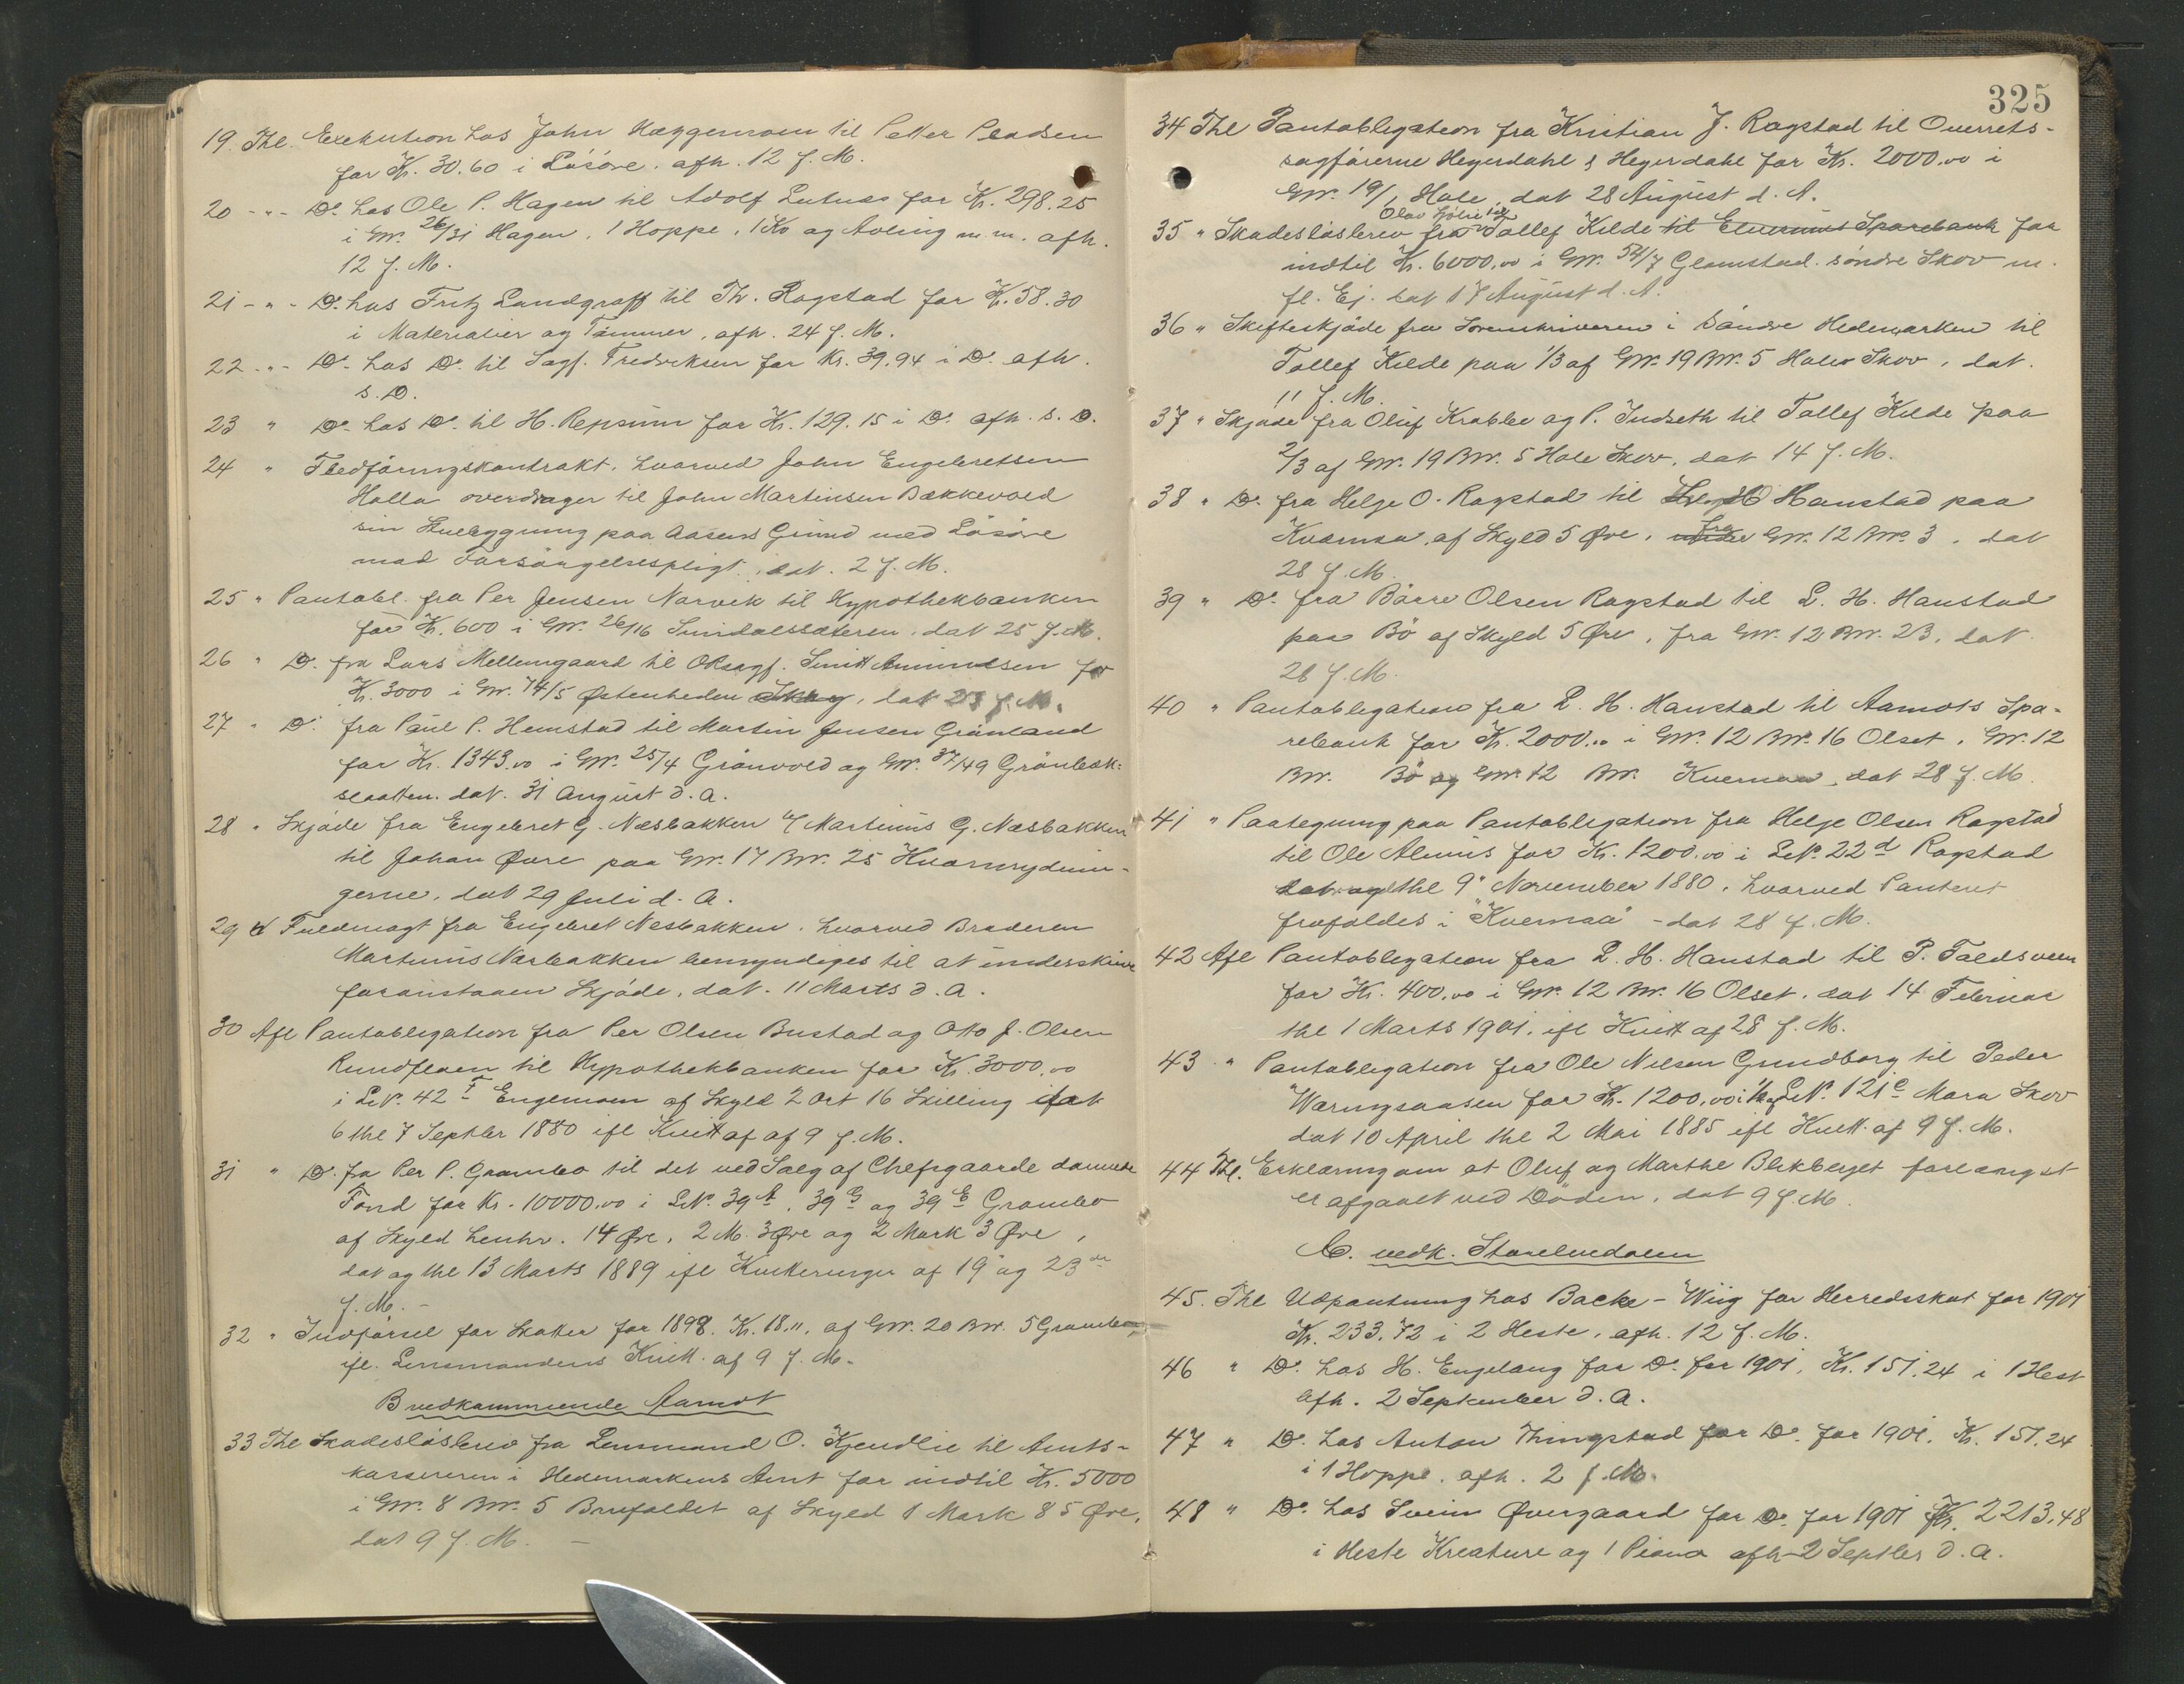 19. Thl. Exekution hos John Hæggenaasen til Petter Pladsen
for Kr. 30.60 i Løsøre. afh. 12 f. M.
20 - " - Do. hos Ole P. Hagen til Adolf Lutnæs for Kr. 298.25
i Gnr. 26/31 Hagen, 1 Hoppe, 1 Ko og Avling m. m. afh.
12 f. M.
21 - " - Do. hos Fritz Landgraff til Th. Rogstad for Kr. 58.30
i Materialier og Tømmer, afh. 24 f. M.
22 - " - Do. hos Do. til Sagf. Fredriksen for Kr. 39.94 i Do. afh.
s. D.
23 " Do. hos Do. til H. Repsum for Kr. 129.15 i Do. afh. s. D.
24 " Fledføringskontrakt, hvorved John Engebretsen
Holla overdrager til John Martinsen Bækkevold
sin Huebygning paa Aasens Grund med Løsøre
mod Forsørgelsespligt, dat. 2 f. M.
25 " Pantobl. fra Per Jensen Narvek til Hypothekbanken
for Kr. 600 i Gnr. 26/16 Sundalssæteren, dat 25 f. M.
26 " Do. fra Lars Mellemgaard til ORsagf. Smitt Amundsen for
Kr. 3000 i Gnr. 14/5 Østenheden Skog, dat 23 f. M.
27 " Do. fra Paul P. Hemstad til Martin Jensen Grønland
for Kr. 1343.00 i Gnr. 25/4 Grønvold og Gnr. 37/49 Grønbæk-
slaatten. dat. 31 August d. A.
28 " Skjøde fra Engebret G. Næsbakken v/ Martinus G. Næsbakken
til Johan Øvre paa Gnr. 17 Bnr. 25 Kværnrydnin-
gerne, dat 29 Juli d. A.
29 d Fuldmagt fra Engebret Nesbakken, hvorved Broderen
Martinus Næsbakken bemyndiges til at underskrive
foranstaaen Skjøde, dat. 11 Marts d. A.
30 Afl Pantobligation fra Per Olsen Bustad og Otto J. Olsen
Rundfloen til Hypothekbanken for Kr. 3000.00
i LNr. 42 f Engemoen af Skyld 2 Ort 16 Skilling dat
6 thl 7 Septbr 1880 ifl Kvitt af af 9 f. M.
31 " Do. fra Per P. Grambo til det ved Salg af Chefsgaarde dannede
Fond for Kr. 10000.00 i LNr. 39 f, 39 g og 39 e Grambo
af Skyld henhv. 14 Øre, 2 M. 3 Øre og 2 Mark 3 Øre,
dat og thl 13 Marts 1889 ifl Kvitteringer af 19 og 23 de
f. M. -
32 " Indførsel for Skatter for 1898. Kr. 18.11, af Gnr. 20 Bnr. 5 Grambo,
ifl. Lensmandens Kvitt. af 9 f. M.
B vedkommende Aamot
33 Thl Skadesløsbrev fra Lensmand O. Kjendlie til Amts-
kassereren i Hedemarkens Amt for indtil Kr. 5000
i Gnr. 8 Bnr. 5 Brufaldet af Skyld 1 Mark 85 Øre,
dat 9 f. M. -
325
34 Thl Pantobligation fra Kristian J. Rogstad til Overrets-
sagførerne Heyerdahl & Heyerdahl for Kr. 2000.00 i
Gnr. 19/1 Hole, dat 28 August d. A.
35 " Skadesløsbrev fra Tollef Kilde til Elverums Sparebank for
indtil Kr. 6000.00 i Gnr. 54/7 Glomstad søndre Skov m.
fl. Ej. dat 17 August d. A.
36 " Skifteskjøde fra Sorenskriveren i Søndre Hedemarken til
Tollef Kilde paa 1/3 af Gnr. 19 Bnr. 5 Holes Skov, dat.
11 f. M.
37 " Skjøde fra Oluf Krabbe og P. Indseth til Tollef Kilde paa
2/3 af Gnr. 19 Bnr. 5 Hole Skov, dat 14 f. M.
38 " Do. fra Helge O. Rogstad til L. H. Hanstad paa
Kværnaa, af Skyld 5 Øre, fra Gnr. 12 Bnr. 3, dat
28 f. M.
39 " Do. fra Børre Olsen Rogstad til L. H. Hanstad
paa Bø af Skyld 5 Øre, fra Gnr. 12 Bnr. 23, dat
28 f. M.
40 " Pantobligation fra L. H. Hanstad til Aamots Spa-
rebank for Kr. 2000.00 i Gnr. 12 Bnr. 16 Olset, Gnr. 12
Bnr. Bø og Gnr. 12 Bnr. Kvernaa, dat 28 f. M.
41 " Paategning paa Pantobligation fra Helge Olsen Rogstad
til Ole Alunis for Kr. 1200.00 i LNr. 22 d Rogstad
dat og thl 9 November 1880, hvorved Panteret
frafaldes i "Kvernaa" - dat 28 f. M.
42 Afl Pantobligation fra L. H. Hanstad til P. Foldsveen
for Kr. 400.00 i Gnr. 12 Bnr. 16 Olset. dat 14 Februar
thl 1 Marts 1901. ifl Kvitt af 28 f. M.
43 " Pantobligation fra Ole Nilsen Grundborg til Peder
Væringsaasen for Kr. 1200.00 i 1/2 af LNr. 121 c Mora Skov
dat 10 April thl 2 Mai 1885 ifl Kvitt. af 9 f. M.
44 Thl. Erklæring om at Oluf og Marthe Blikberget forlængst
er afgaaet ved Døden, dat 9 f. M.
C. vedk. Storelvedalen
45. Thl Udpantning hos Backe-Wiig for Herredsskat for 1901
Kr. 233.72 i 2 Heste, afh. 12 f. M.
46 " Do. hos H. Engelaug for Do. for 1901, Kr. 151.24 i 1 Hest
afh. 2 September d. A.
47 " Do. hos Anton Thingstad for Do. for 1901. Kr. 151.24
i 1 Hoppe. afh. 2 f. M.
48 " Do. hos Svein Øvergaard for Do. for 1901 Kr. 2213.48
i Heste Kreature og 1 Piano afh 2 Septbr d. A.